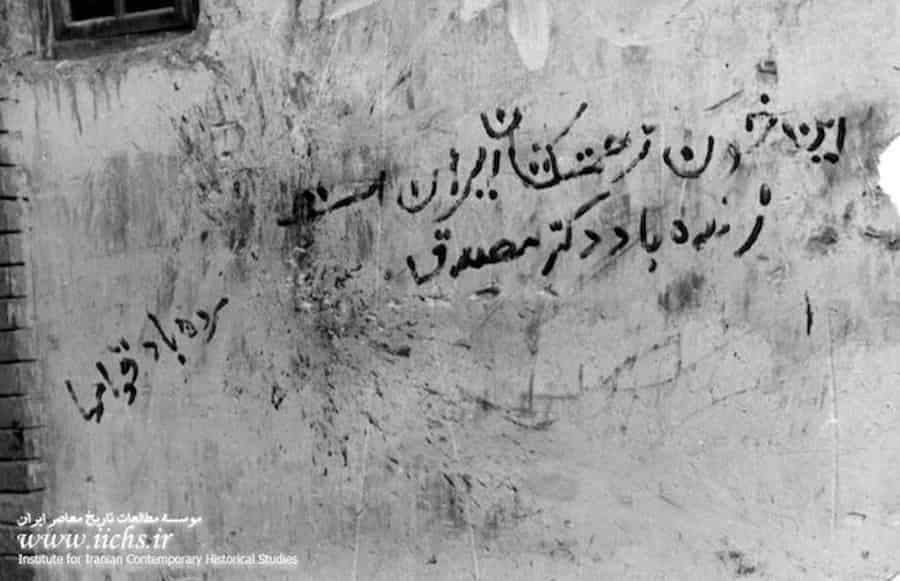 این خون زحمتکشان ایران است
زنده باد دکتر مصدق
مرده باد قوام ها
موسسه مطالعات تاریخ معاصر ایران
www.iichs.ir
Institute for Iranian Contemporary Historical Studies